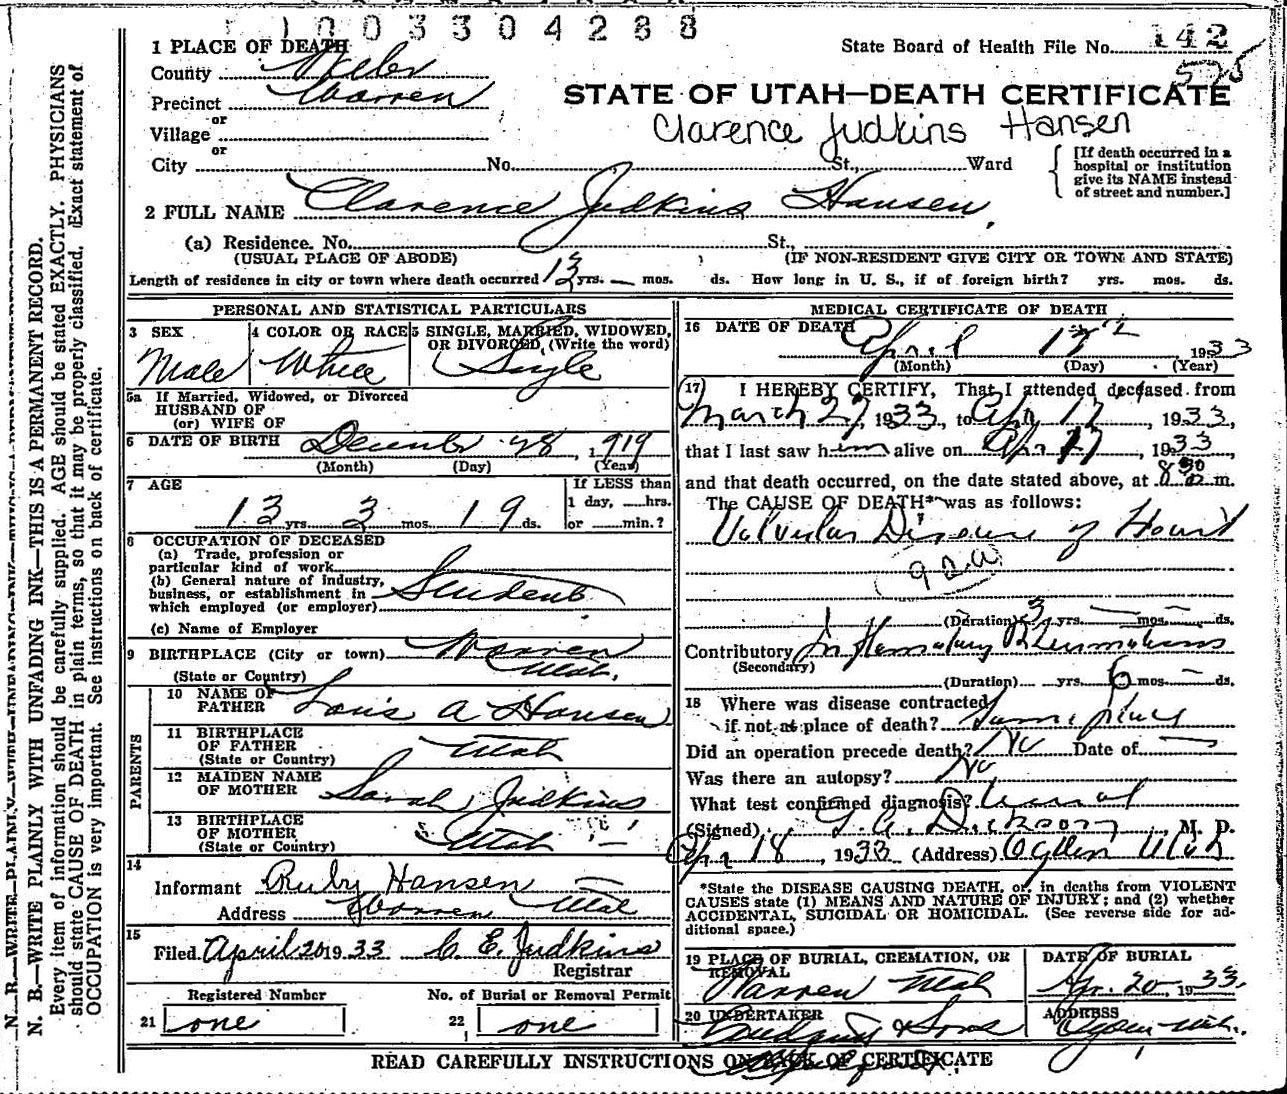 1003304288
1 PLACE OF DEATH
State Board of Health File No. 142
575
County Weber
Precinct Warren
or
Village
or
STATE OF UTAH—DEATH CERTIFICATE
Clarence Judkins Hansen
City No. St., Ward
[If death occurred in a hospital or institution give its NAME instead of street and number.]
2 FULL NAME Clarence Judkins Hansen
(a) Residence. No. St.,
(USUAL PLACE OF ABODE) (IF NON-RESIDENT GIVE CITY OR TOWN AND STATE)
Length of residence in city or town where death occurred 13 yrs. — mos. ds. How long in U. S., if of foreign birth? yrs. mos. ds.
PERSONAL AND STATISTICAL PARTICULARS
3 SEX
Male
4 COLOR OR RACE
White
5 SINGLE, MARRIED, WIDOWED,
OR DIVORCED, (Write the word)
Single
5a If Married, Widowed, or Divorced
HUSBAND OF
(or) WIFE OF
6 DATE OF BIRTH December 28, 1919
(Month) (Day) (Year)
7 AGE
If LESS than
1 day, hrs.
13 yrs. 3 mos. 19 ds. or min.?
8 OCCUPATION OF DECEASED
(a) Trade, profession or
particular kind of work
(b) General nature of industry,
business, or establishment in
which employed (or employer) Student
(c) Name of Employer
9 BIRTHPLACE (City or town) Warren
(State or Country) Utah.
PARENTS
10 NAME OF
FATHER Louis A Hansen
11 BIRTHPLACE
OF FATHER Utah
(State or Country)
12 MAIDEN NAME
OF MOTHER Sarah Judkins
13 BIRTHPLACE
OF MOTHER Utah
(State or Country)
14
Informant Ruby Hansen
Address Warren Utah
15
Filed April 20 1933 C. E. Judkins
Registrar
Registered Number No. of Burial or Removal Permit
21 one 22 one
MEDICAL CERTIFICATE OF DEATH
16 DATE OF DEATH
April 17 1933
(Month) (Day) (Year)
17 I HEREBY CERTIFY, That I attended deceased from
March 27, 1933, to Apr 17, 1933,
that I last saw him alive on Apr 17, 1933,
and that death occurred, on the date stated above, at 8 30 m.
The CAUSE OF DEATH* was as follows:
Valvular Disease of Heart
92a
(Duration) 3 yrs. — mos. — ds.
Contributory Inflamatory Rheumatism
(Secondary)
(Duration) yrs. 6 mos. — ds.
18 Where was disease contracted
if not at place of death? Same place
Did an operation precede death? No Date of —
Was there an autopsy? No
What test confirmed diagnosis? Usual
(Signed) Dickson M. D.
Apr 18, 1933 (Address) Ogden Utah
*State the DISEASE CAUSING DEATH, or, in deaths from VIOLENT
CAUSES state (1) MEANS AND NATURE OF INJURY; and (2) whether
ACCIDENTAL, SUICIDAL OR HOMICIDAL. (See reverse side for ad-
ditional space.)
19 PLACE OF BURIAL, CREMATION, OR
REMOVAL
Warren Utah
DATE OF BURIAL
Apr. 20, 1933.
20 UNDERTAKER
& Sons
ADDRESS
Ogden Utah.
READ CAREFULLY INSTRUCTIONS ON BACK OF CERTIFICATE
N. B.—WRITE PLAINLY WITH UNFADING INK—THIS IS A PERMANENT RECORD.
Every item of information should be carefully supplied. AGE should be stated EXACTLY. PHYSICIANS
should state CAUSE OF DEATH in plain terms, so that it may be properly classified. Exact statement of
OCCUPATION is very important. See instructions on back of certificate.